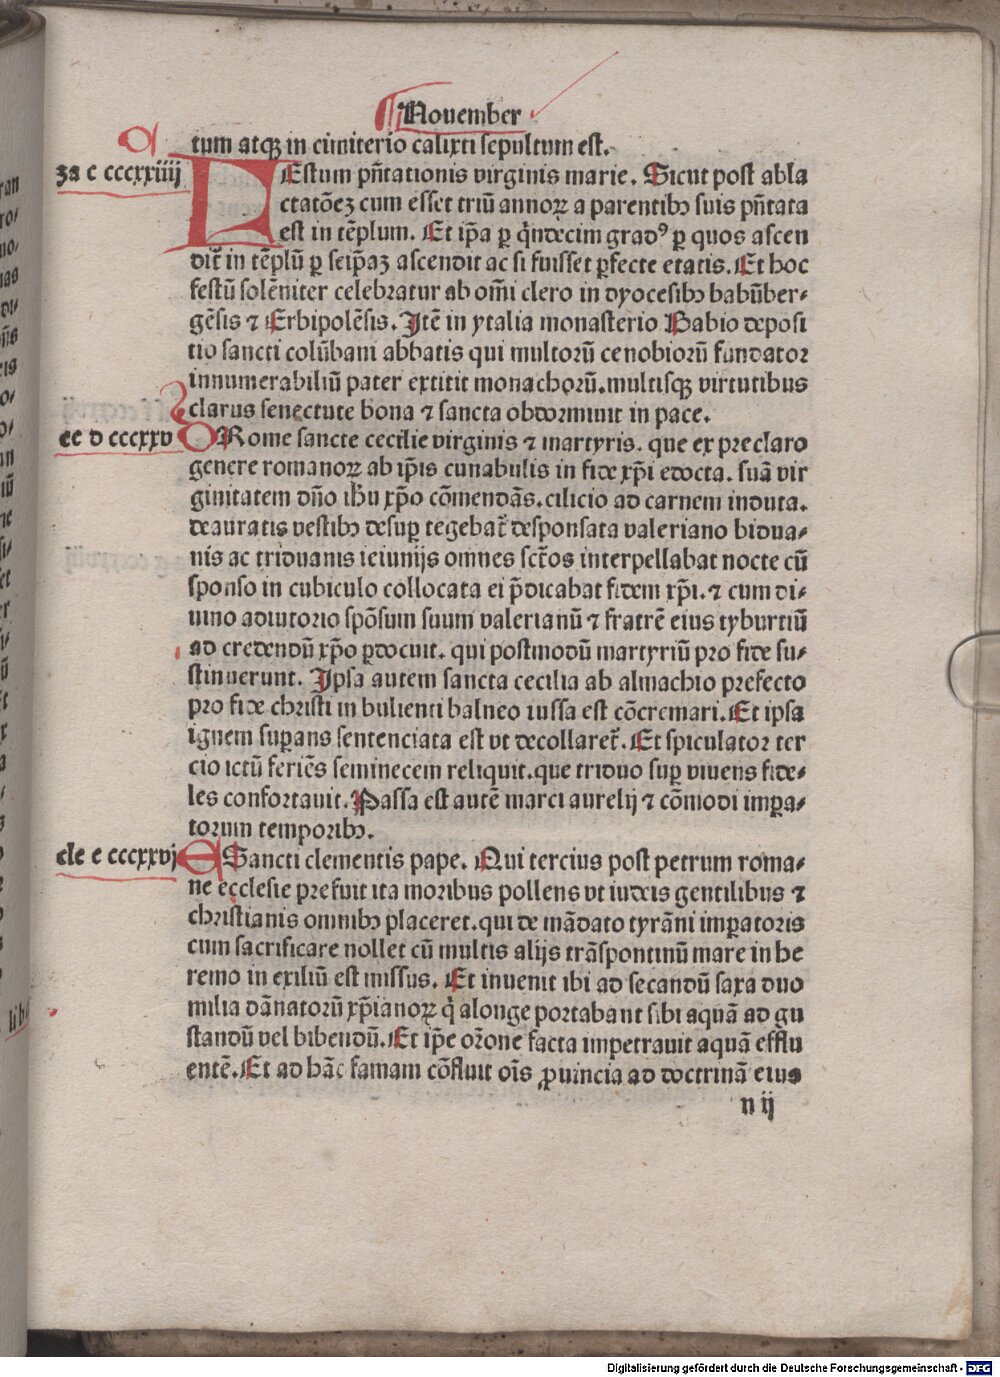 November
tum atqꝫ in cimiterio calixti sepultum est.
za c cccxxiiij
FEstum pñtationis virginis marie. Sicut post abla
ctatõeꝫ cum esset triũ annoꝝ a parentibꝰ suis pñtata
est in tẽplum. Et ip̃a ꝑ q̃ndecim gradꝰ ꝑ quos ascen
dit̃ in tẽplũ ꝑ seip̃aꝫ ascendit ac si fuisset ꝑfecte etatis. Et hoc
festũ solẽniter celebratur ab om̃i clero in dyocesibꝰ babũber⸗
gẽsis ⁊ Erbipolẽsis. Itẽ in ytalia monasterio Babio deposi
tio sancti colũbani abbatis qui multorũ cenobiorũ fundator
innumerabiliũ pater extitit monachorũ. multisqꝫ virtutibus
clarus senectute bona ⁊ sancta obdormiuit in pace.
ce d cccxxv
Rome sancte cecilie virginis ⁊ martyris. que ex preclaro
genere romanoꝝ ab ip̃is cunabulis in fide xp̃i edocta. suã vir
ginitatem dño ihũ xp̃o cõmendãs. cilicio ad carnem induta.
deauratis vestibꝰ desuꝑ tegebat̃ desponsata valeriano bidua⸗
nis ac triduanis ieiunijs omnes sct̃os interpellabat nocte cũ
sponso in cubiculo collocata ei p̃dicabat fidem xp̃i. ⁊ cum di⸗
uino adiutorio spõsum suum valerianũ ⁊ fratrẽ eius tyburtiũ
ad credendũ xp̃o ꝑdocuit. qui postmodũ martyriũ pro fide su⸗
stinuerunt. Ipsa autem sancta cecilia ab almachio prefecto
pro fide christi in bulienti balneo iussa est cõcremari. Et ipsa
ignem suꝑans sentenciata est vt decollaret̃. Et spiculator ter
cio ictũ feriẽs seminecem reliquit. que triduo suꝑ viuens fide⸗
les confortauit. Passa est autẽ marci aurelij ⁊ cõmodi imꝑa⸗
torum temporibꝰ.
cle e cccxxvj
Sancti clementis pape. Qui tercius post petrum roma⸗
ne ecclesie prefuit ita moribus pollens vt iudeis gentilibus ⁊
christianis omnibꝰ placeret. qui de mãdato tyrãni imꝑatoris
cum sacrificare nollet cũ multis alijs trãspontinũ mare in he
remo in exiliũ est missus. Et inuenit ibi ad secandũ saxa duo
milia dãnatorũ xp̃ianoꝝ q̃ alonge portabant sibi aquã ad gu
standũ vel bibendũ. Et ip̃e or̃one facta impetrauit aquã efflu
entẽ. Et ad hãc famam cõfluit oĩs ꝓuincia ad doctrinã eius
n ij
Digitalisierung gefördert durch die Deutsche Forschungsgemeinschaft - DFG